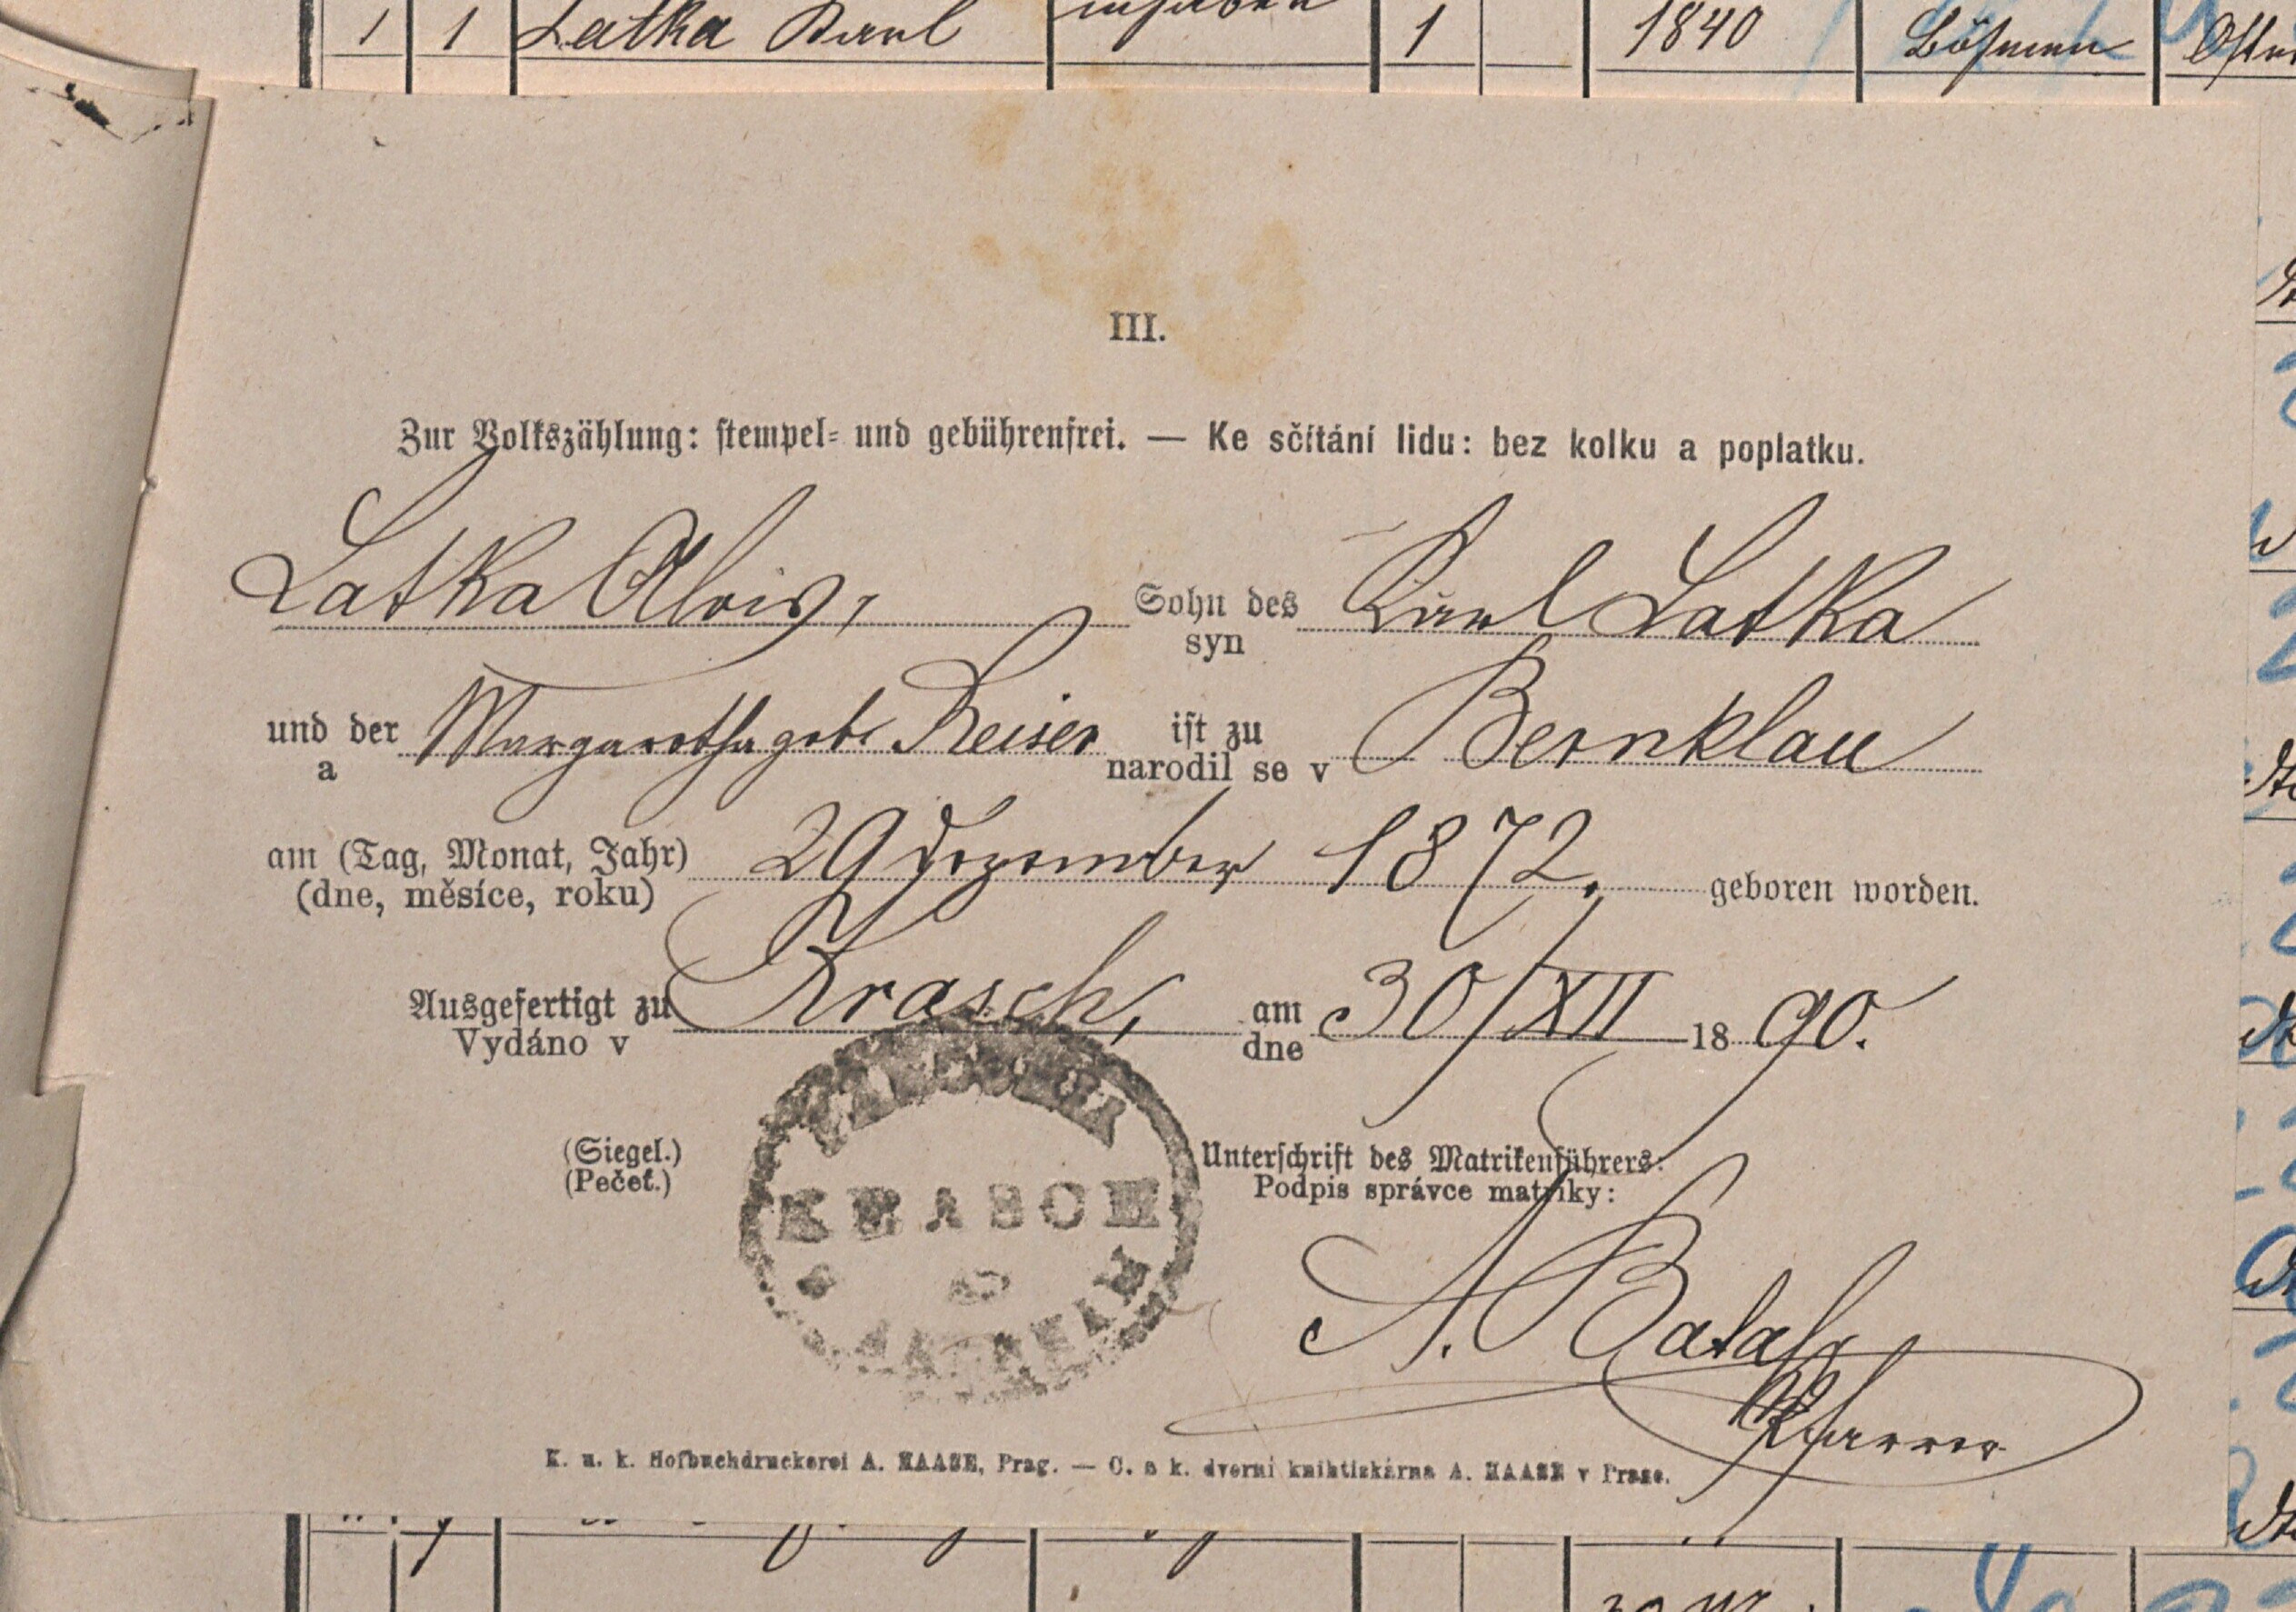 1 1 Latka Karl 1 1840 Böhmen
III.
Zur Volkszählung: stempel- und gebührenfrei. — Ke sčítání lidu: bez kolku a poplatku.
Latka Alois, Sohn des Karl Latka
syn
und der Margaretha geb. Reiser ist zu Bernklau
a narodil se v
am (Tag, Monat, Jahr) 29 Dezember 1872. geboren worden.
(dne, měsíce, roku)
Ausgefertigt zu Krasch, am 30/XII 1890.
Vydáno v dne
(Siegel.)
(Pečeť.)
KRASCH
Unterschrift des Matrikenführers:
Podpis správce matriky:
A.
Pfarrer
K. u. k. Hofbuchdruckerei A. HAASE, Prag. — C. a k. dvorní knihtiskárna A. HAASE v Praze.